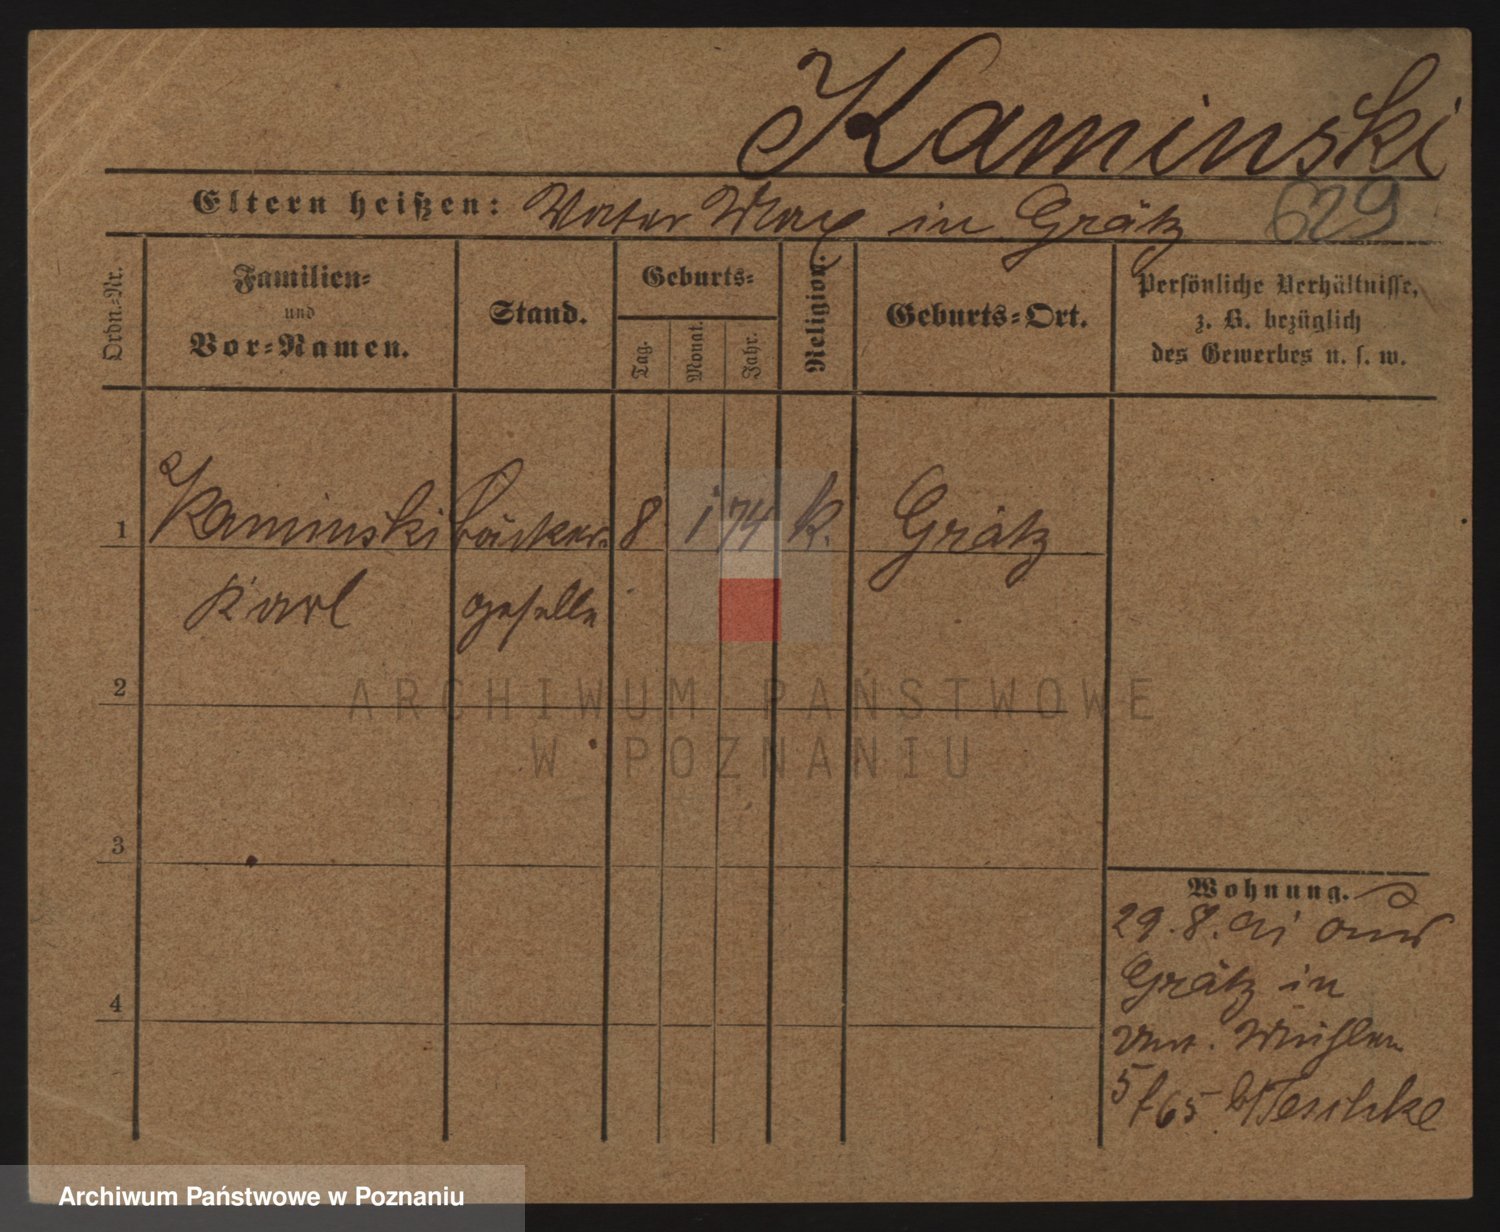 Kaminski
Eltern heißen: Vater Max in Grätz 629
Ordn.-Nr.
Familien-
und
Vor-Namen.
Stand.
Geburts-
Tag.
Monat.
Jahr.
Religion.
Geburts-Ort.
Persönliche Verhältnisse,
z. B. bezüglich
des Gewerbes u. s. w.
1 Kaminski Bäcker- 8 1 74 k. Grätz
Karl geselle
2
ARCHIWUM PAŃSTWOWE
W POZNANIU
3
Wohnung.
29. 8. 91 aus
Grätz in
4
Unt. Mühlen
5/65 b/Teschke
Archiwum Państwowe w Poznaniu